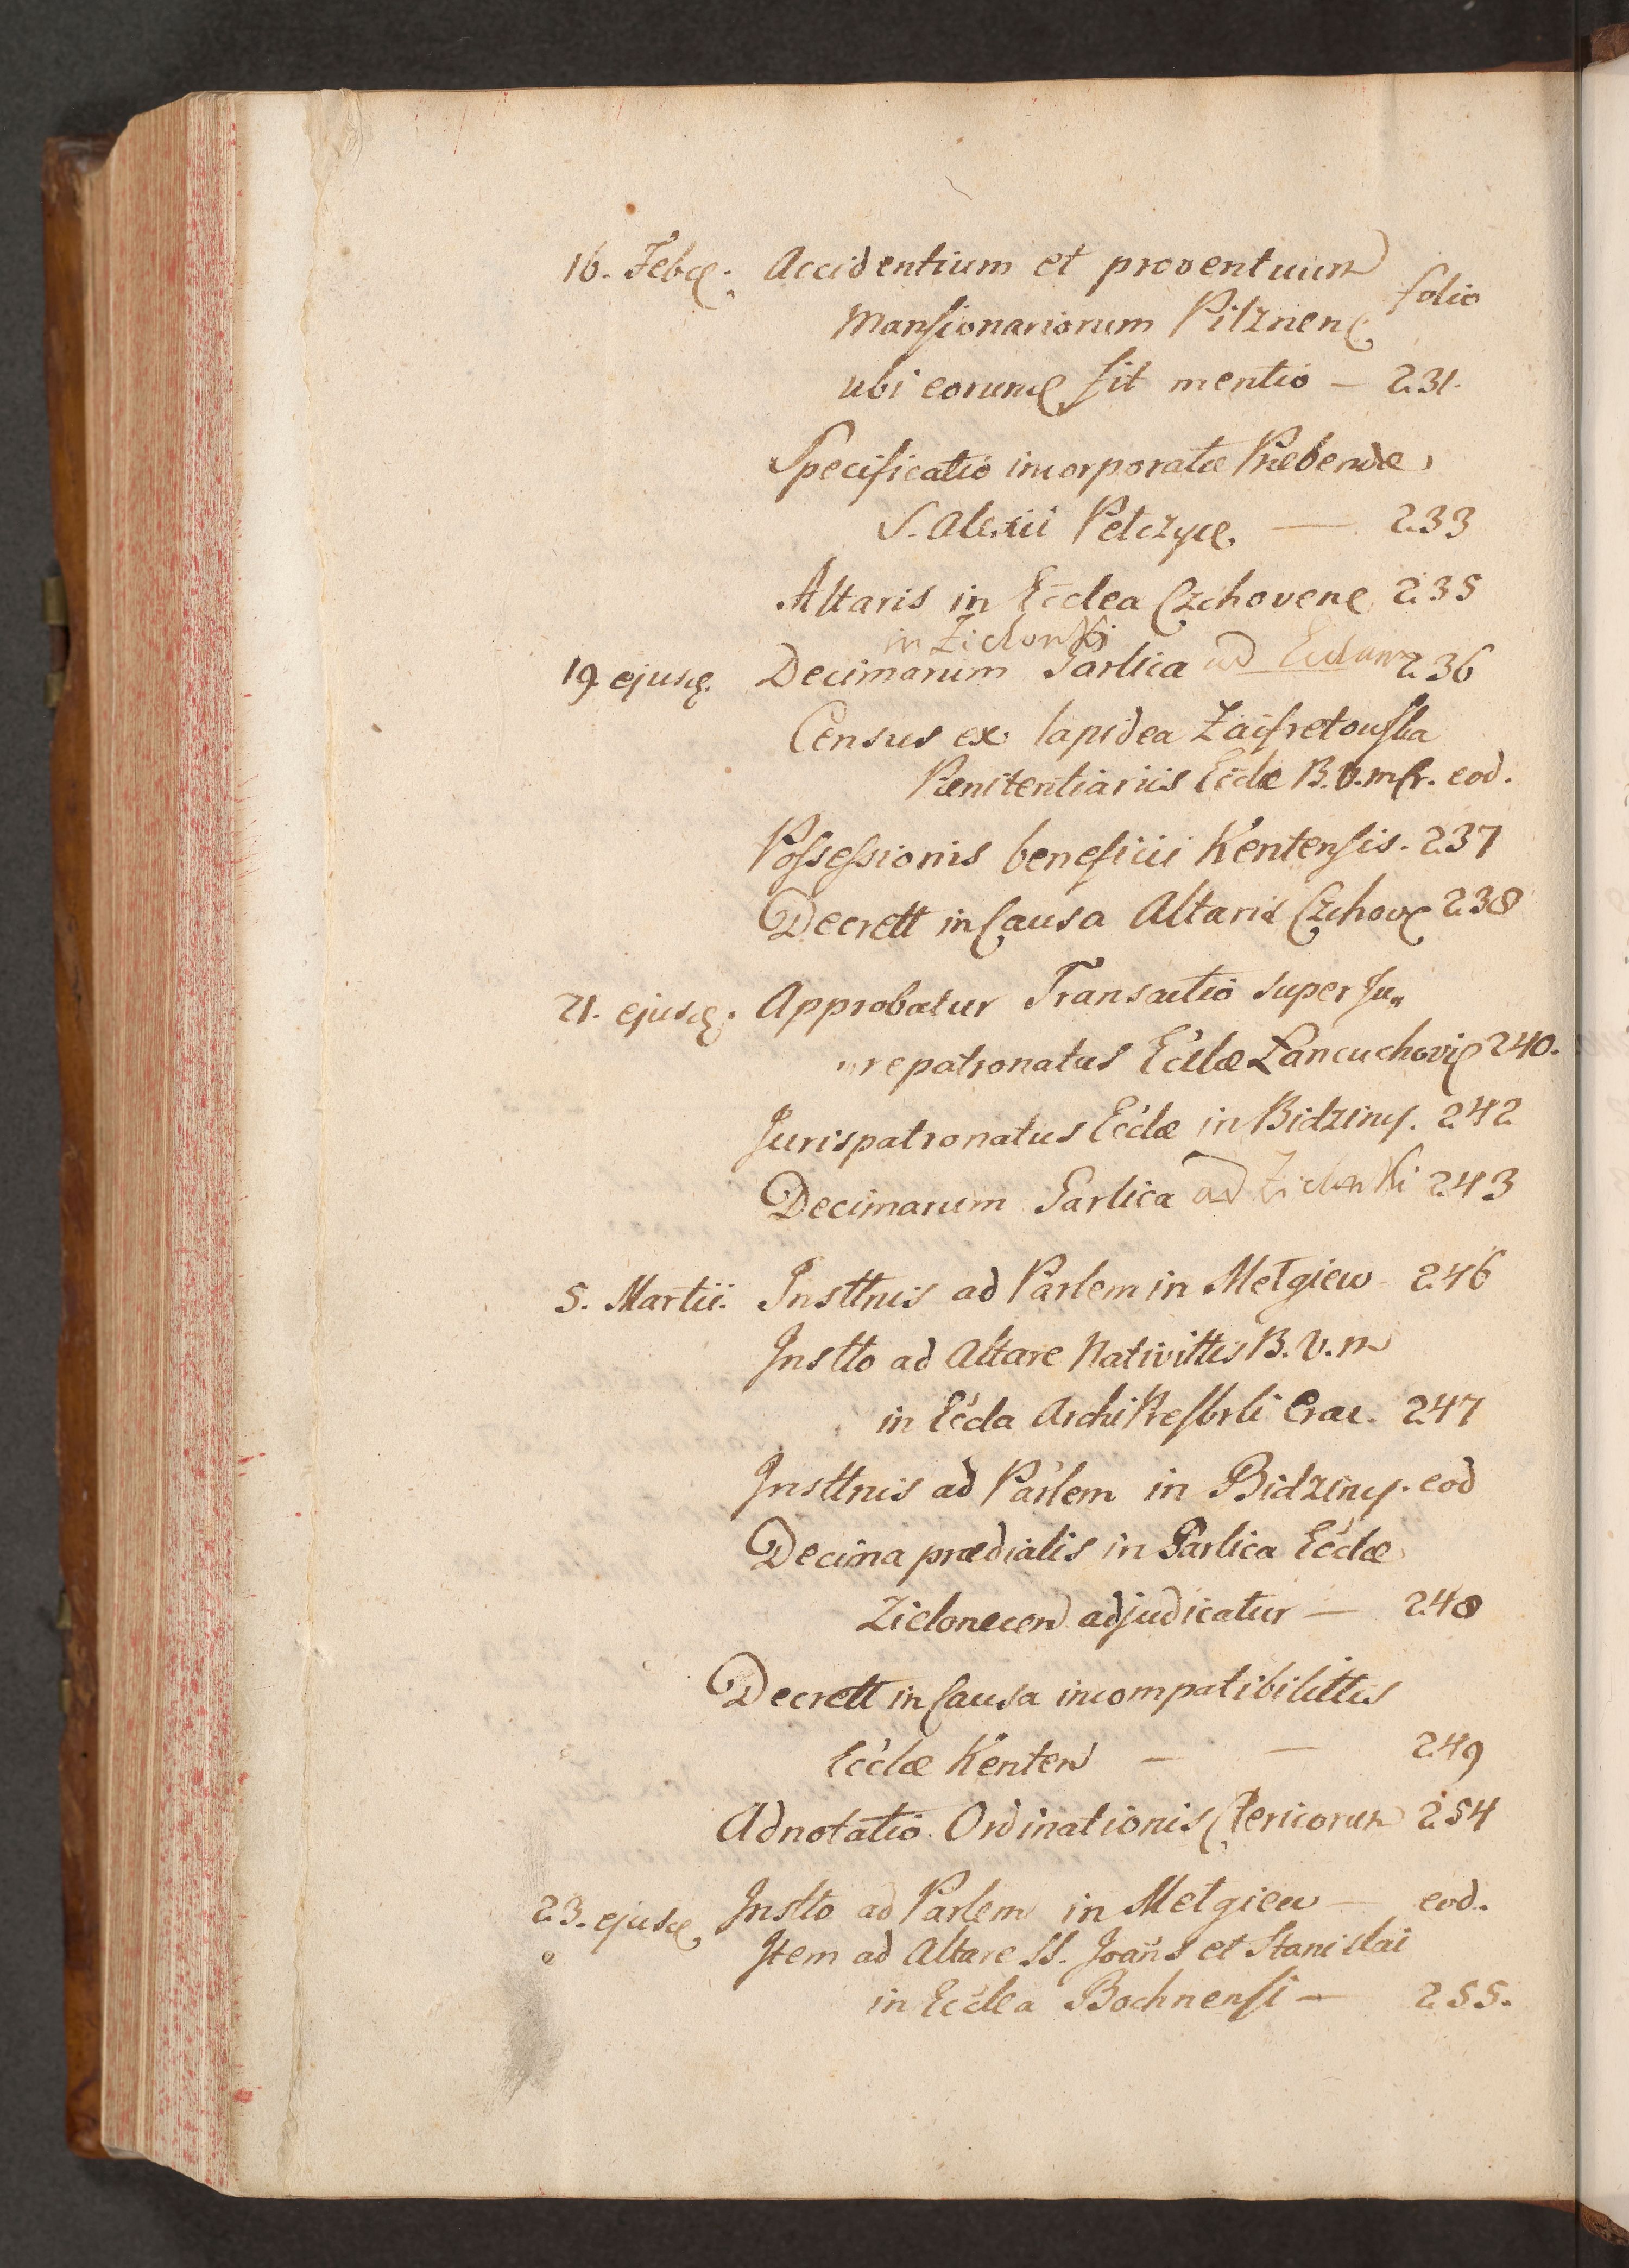 16. Febr. Accidentium et proventuum
Mansionariorum Pilznen folio
ubi eorum fit mentio — 231.
Specificatio incorporatæ Præbendæ
S. Alexii Pelczyc. — 233
Altaris in Ecclea Czchovene 235
in Zielonki
19 ejusd. Decimarum Garlica ad 236
Census ex lapidea
Pænitentiariis Ecclæ B.V.M. eod.
Possessionis beneficii Kentensis. 237
Decrett in Causa Altaris Czchov 238
21. ejusd. Approbatur Transactio super Ju„
„repatronatus Ecclæ Lancuchovi 240.
Jurispatronatus Ecclæ in Bidziny. 242
Decimarum Garlica ad Zielonki 243
5. Martii. Insttnis ad Parlem in Mełgiew 246
Instto ad Altare Nativittis B.V.M
in Eccla ArchiPresbrli Crac. 247
Insttnis ad Parlem in Bidziny. eod
Decima prædialis in Garlica Ecclæ
Zielonecen adjudicatur — 248
Decrett in Causa incompatibilittis
Ecclæ Kenten — — 249
Adnotatio Ordinationis Clericorum 254
23. ejusd Instto ad Parlem in Mełgiew — eod.
Item ad Altare SS. Joañs et Stanislai
in Ecclea Bochnensi — 255.